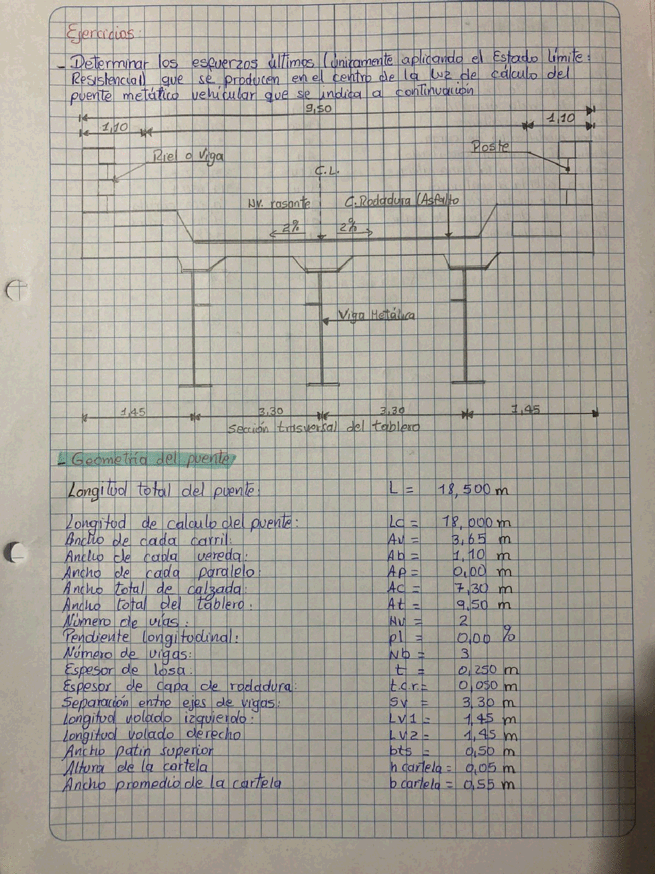 Ejercicios:
- Determinar los esfuerzos últimos (únicamente aplicando el Estado límite:
Resistencial) que se producen en el centro de la luz de cálculo del
puente metálico vehicular que se indica a continuación
9,50
1,10
1,10
Riel o viga
Poste
C.L.
Nv. rasante
C. Rodadura (Asfalto
2%
2%
Viga Metálica
1,45
3,30
3,30
1,45
Sección trasversal del tablero
- Geometría del puente
Longitud total del puente: L = 18,500 m
Longitud de calculo del puente: Lc = 18,000 m
Ancho de cada carril: Av = 3,65 m
Ancho de cada vereda: Ab = 1,10 m
Ancho de cada paralelo: Ap = 0,00 m
Ancho total de calzada: Ac = 7,30 m
Ancho total del tablero: At = 9,50 m
Número de vías: Nv = 2
Pendiente longitudinal: pl = 0,00 %
Número de vigas: Nb = 3
Espesor de losa: t = 0,250 m
Espesor de capa de rodadura: t.c.r = 0,050 m
Separación entre ejes de vigas: Sv = 3,30 m
Longitud volado izquierdo: Lv1 = 1,45 m
Longitud volado derecho Lv2 = 1,45 m
Ancho patin superior bts = 0,50 m
Altura de la cartela h cartela = 0,05 m
Ancho promedio de la cartela b cartela = 0,55 m